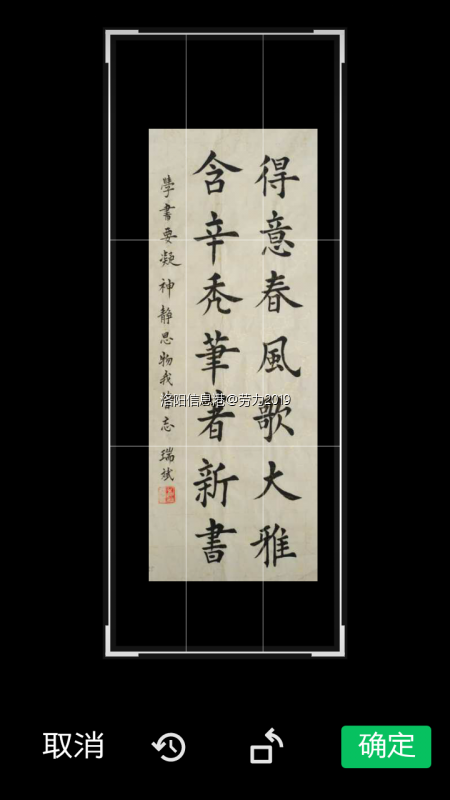 得意春風歌大雅
含辛秃筆著新書
學書要凝神靜思物我皆忘 瑞斌
洛阳信息港@劳力2019
取消
确定